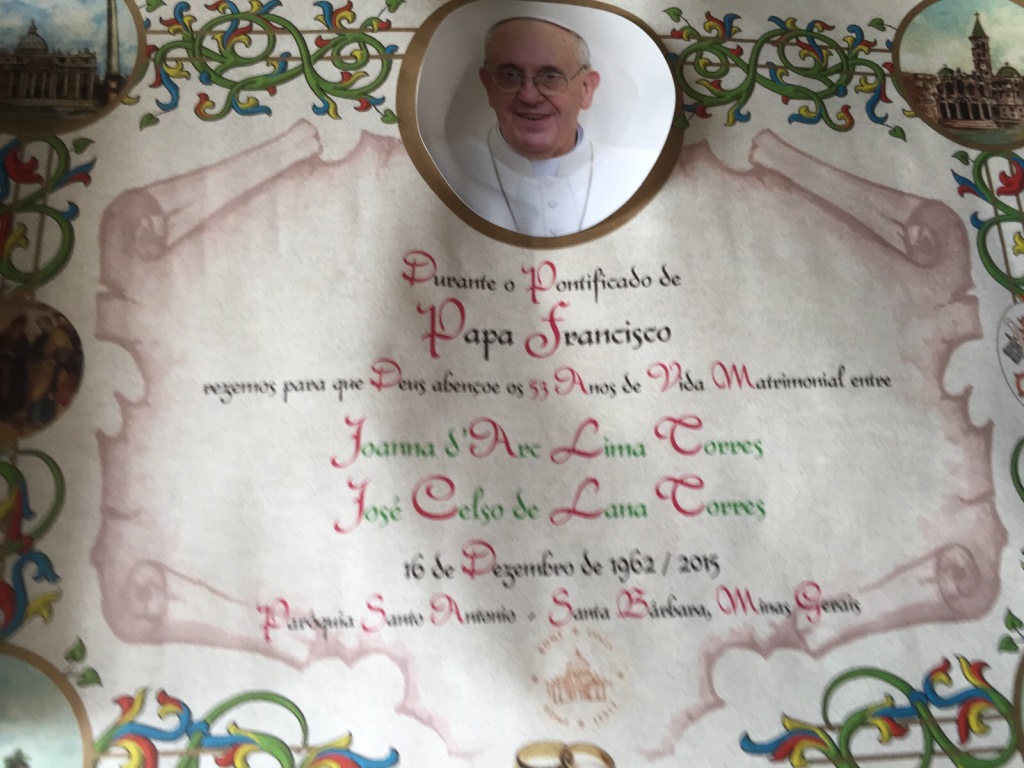 Durante o Pontificado de
Papa Francisco
rezemos para que Deus abençoe os 53 Anos de Vida Matrimonial entre
Joanna d'Arc Lima Torres
José Celso de Lana Torres
16 de Dezembro de 1962 / 2015
Paróquia Santo Antonio - Santa Bárbara, Minas Gerais